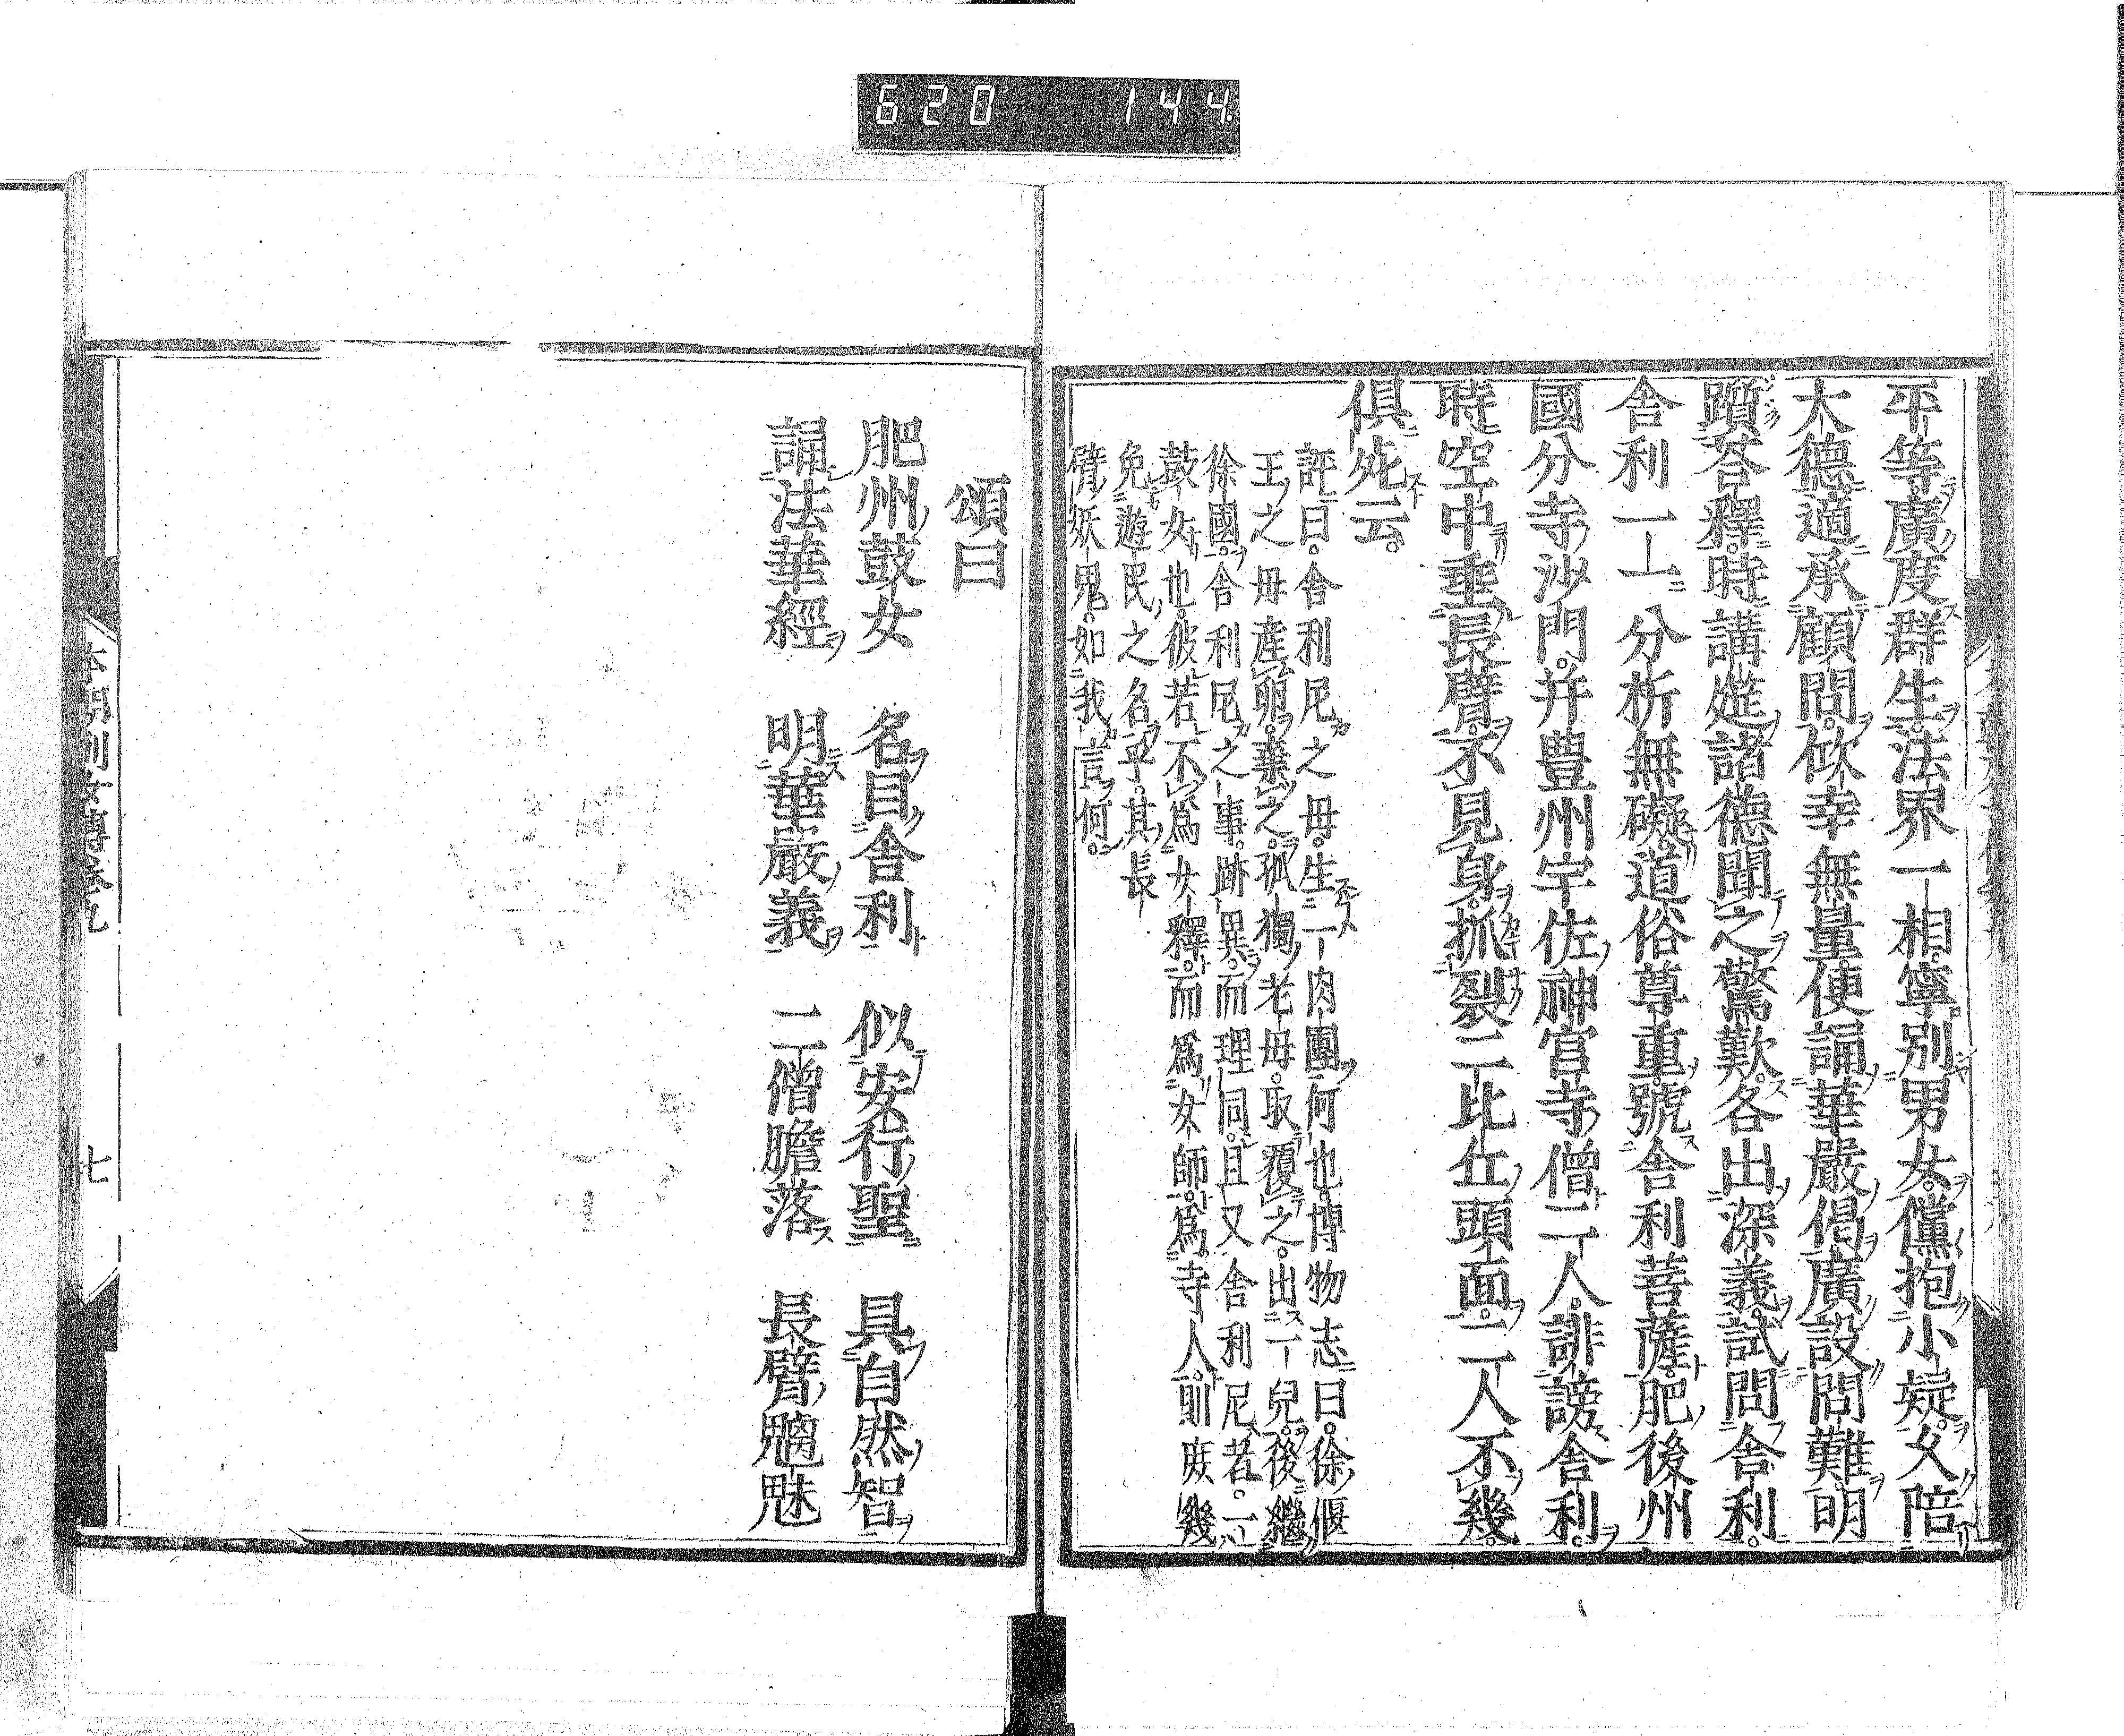 620 144
平等廣度群生法界一相寧別男女儻抱小疑父陪
大德適承顧問欣幸無量使誦華嚴偈廣設問難明
躓荅釋時講筵諸德聞之驚歎各出深義試問舍利
舍利一一分析無礙道俗尊重號舍利菩薩肥後州
國分寺沙門并豊州宇佐神宮寺僧二人誹謗舍利
時空中垂長臂不見身抓裂二比丘頭面二人不幾
俱死云
評曰舍利尼之母生一肉團何也博物志曰徐偃
王之母産卵棄之孤獨老母取覆之出一兒後繼
徐國舍利尼之事跡異而理同且又舍利尼者一ハ
鼓女也彼若不爲女釋而爲女師爲寺人則庶幾
免遊民之名乎其長
臂妖鬼如我言何
頌曰
肥州鼓女 名目舍利 似安行聖 具自然智
誦法華經 明華嚴義 二僧膽落 長臂魑魅
本朝列女傳卷九 七